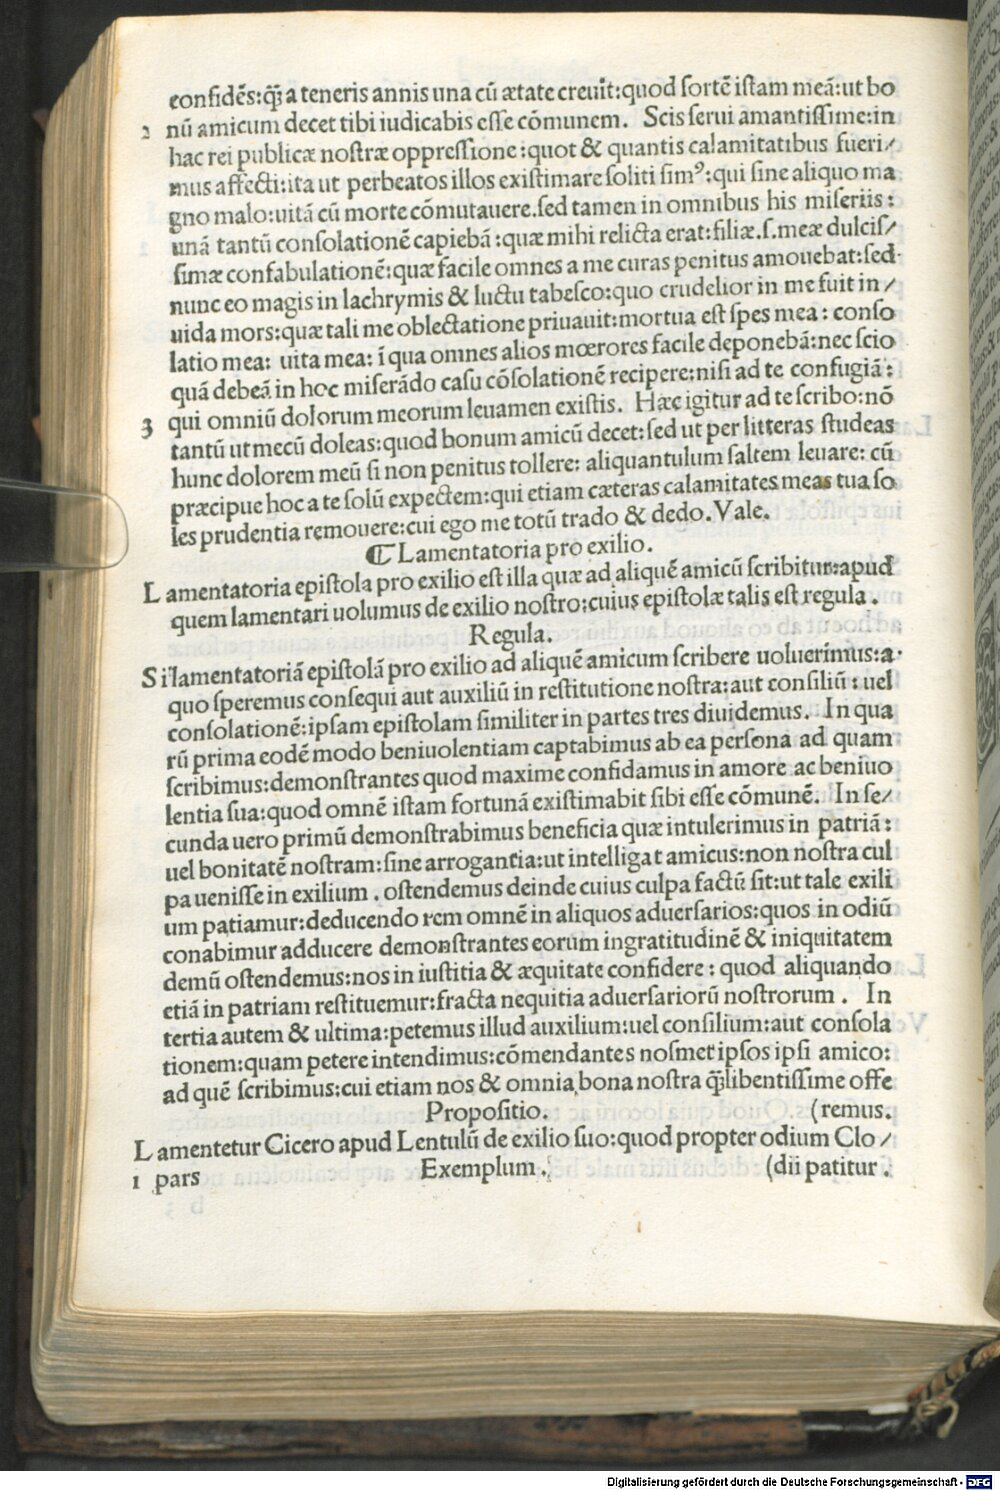 confidẽs:ꝙ̃ a teneris annis una cũ ætate creuit:quod ſortẽ iſtam meã:ut bo
2 nũ amicum decet tibi iudicabis eſſe cõmunem. Scis ſerui amantiſſime:in
hac rei publicæ noſtræ oppreſſione:quot & quantis calamitatibus fueri/
mus affecti:ita ut perbeatos illos exiſtimare ſoliti ſimꝰ:qui ſine aliquo ma
gno malo:uitã cũ morte cõmutauere.ſed tamen in omnibus his miſeriis:
unã tantũ conſolationẽ capiebã:quæ mihi relicta erat:filiæ.ſ.meæ dulciſ/
ſimæ confabulationẽ:quæ facile omnes a me curas penitus amouebat:ſed
nunc eo magis in lachrymis & luctu tabeſco:quo crudelior in me fuit in/
uida mors:quæ tali me oblectatione priuauit:mortua eſt ſpes mea: conſo
latio mea: uita mea: ĩ qua omnes alios mœrores facile deponebã:nec ſcio
quã debeã in hoc miſerãdo caſu cõſolationẽ recipere:niſi ad te confugiã:
3 qui omniũ dolorum meorum leuamen exiſtis. Hæc igitur ad te ſcribo:nõ
tantũ ut mecũ doleas:quod bonum amicũ decet:ſed ut per litteras ſtudeas
hunc dolorem meũ ſi non penitus tollere: aliquantulum ſaltem leuare: cũ
præcipue hoc a te ſolũ expectem:qui etiam cæteras calamitates meas tua ſo
les prudentia remouere:cui ego me totũ trado & dedo.Vale.
⸿ Lamentatoria pro exilio.
Lamentatoria epiſtola pro exilio eſt illa quæ ad aliquẽ amicũ ſcribitur:apud
quem lamentari uolumus de exilio noſtro:cuius epiſtolæ talis eſt regula.
Regula.
Si lamentatoriã epiſtolã pro exilio ad aliquẽ amicum ſcribere uoluerimus:a
quo ſperemus conſequi aut auxiliũ in reſtitutione noſtra:aut conſiliũ: uel
conſolationẽ:ipſam epiſtolam ſimiliter in partes tres diuidemus. In qua
rũ prima eodẽ modo beniuolentiam captabimus ab ea perſona ad quam
ſcribimus:demonſtrantes quod maxime confidamus in amore ac beniuo
lentia ſua:quod omnẽ iſtam fortunã exiſtimabit ſibi eſſe cõmunẽ. In ſe/
cunda uero primũ demonſtrabimus beneficia quæ intulerimus in patriã:
uel bonitatẽ noſtram:ſine arrogantia:ut intelligat amicus:non noſtra cul
pa ueniſſe in exilium. oſtendemus deinde cuius culpa factũ ſit:ut tale exili
um patiamur:deducendo rem omnẽ in aliquos aduerſarios:quos in odiũ
conabimur adducere demonſtrantes eorum ingratitudinẽ & iniquitatem
demũ oſtendemus:nos in iuſtitia & æquitate confidere: quod aliquando
etiã in patriam reſtituemur:fracta nequitia aduerſariorũ noſtrorum. In
tertia autem & ultima:petemus illud auxilium:uel conſilium:aut conſola
tionem:quam petere intendimus:cõmendantes noſmet ipſos ipſi amico:
ad quẽ ſcribimus:cui etiam nos & omnia bona noſtra ꝙ̃libentiſſime offe
Propoſitio. (remus.
Lamentetur Cicero apud Lentulũ de exilio ſuo:quod propter odium Clo/
1 pars Exemplum. (dii patitur.
Digitalisierung gefördert durch die Deutsche Forschungsgemeinschaft - DFG